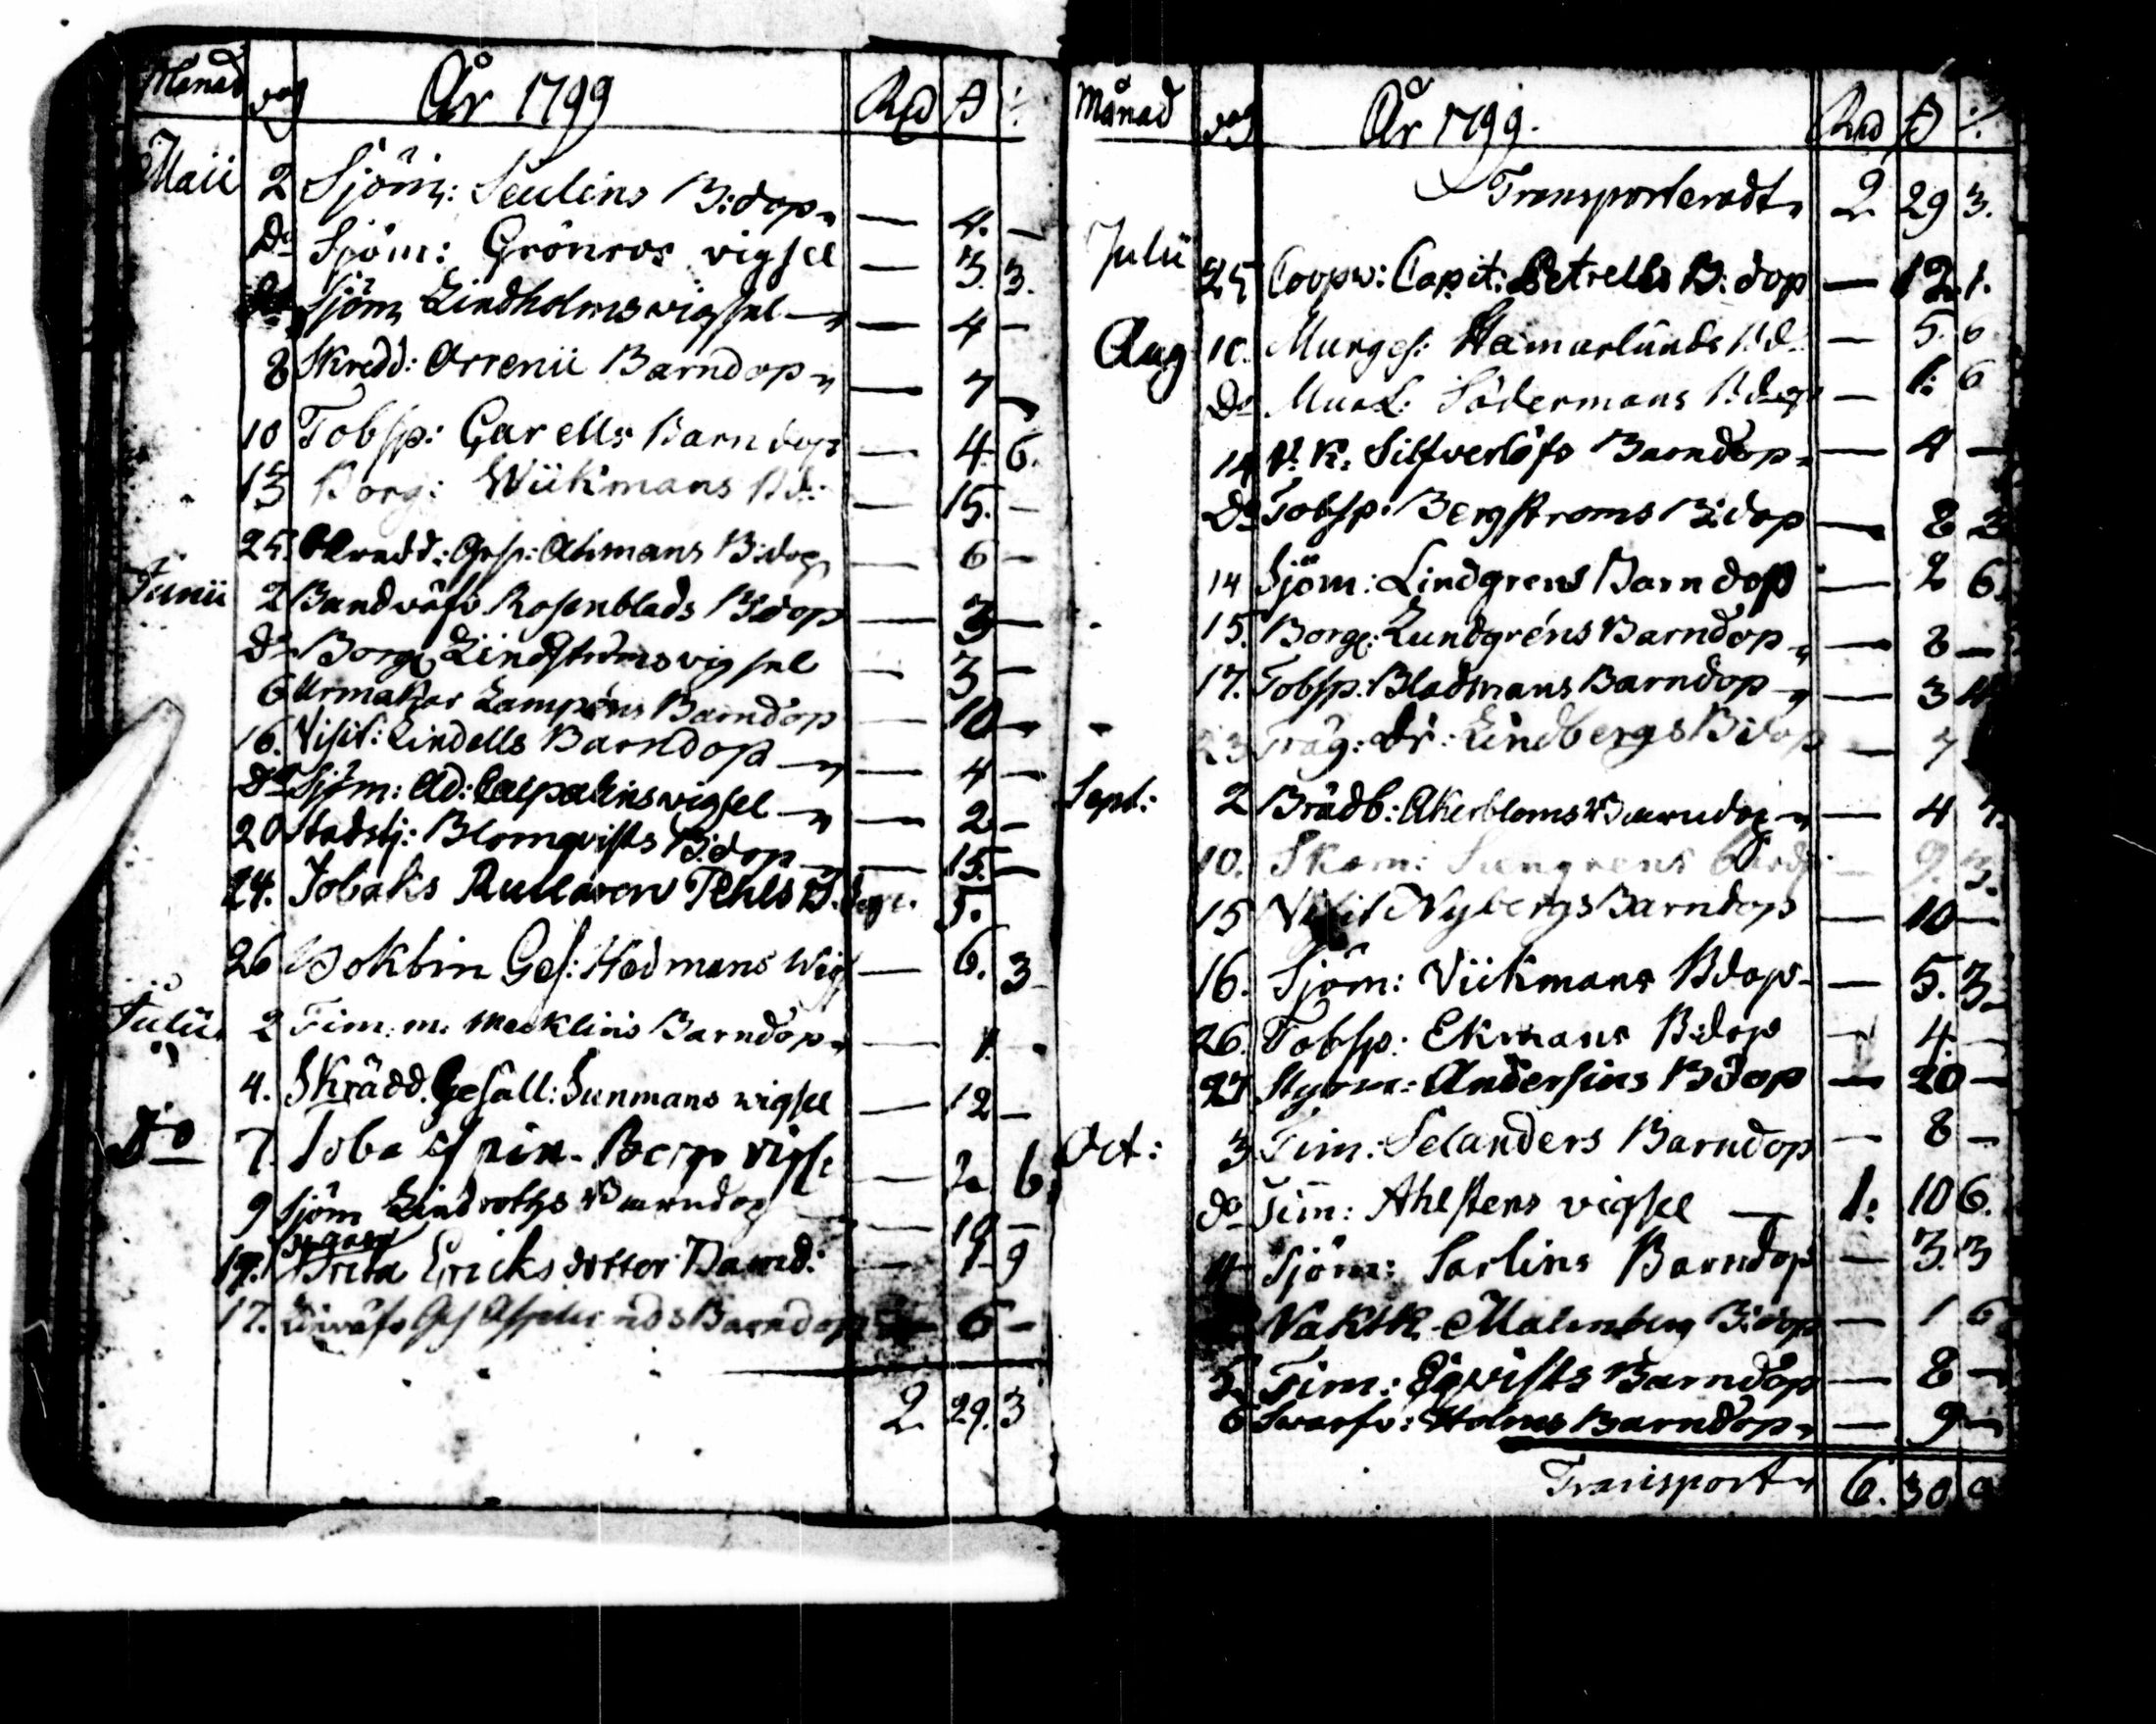 Månad dag År 1799 Rd ß
Maii 2 Sjöm: Seulins B:dop — 4. —
Do Sjöm: Grönros vigsel — 3. 3.
Do Sjöm Lindholms vigsel — 4 —
8 Skredd: Arrenii Barndop — 7
10 Tobsp: Garells Barndop — 4. 6.
13 Borg: Wiikmans Bd: — 15. —
25. Ahmans B:dop — 6 —
Junii 2 Bandväfv Rosenblads B:dop — 3 —
Do Borg Lindströms vigsel — 3 —
6 Urmakar Lampéns Barndop — 10 —
16. Visit: Lindells Barndop — 4 —
Do Sjöm: Ad: Calpalins vigsel — 2 —
20 Stadstj: Blomqvists B:dop — 15. —
24. Tobaks Pehls B.dop. 5.
26 Bokbin Ges: Hedmans Wigs — 6. 3
Julii 2 Tim. m. Mecklins Barndop — 1.
4. Skrädd. Gesäll: Sunmans vigsel — 12 —
Do 7. Toba Spin. Berg vigse — 2 6
9 Sjöm Lindroths Barndop — 10 —
Pigan
17. Brita Ericks dotter Barnd: — 1 9
17. Ges Barndop 6 —
2 29. 3
Månad dag År 1799. Rd ß
Transporteradt 2 29 3.
Julii 25 Coopv: Capit: Petrells B: dop — 12. 1.
Aug 10. Murges: Hamarlunds B.d. — 5. 6
Do Mur L: Södermans B.dop — 1: 6
14 V. K. Silfverlöfs Barndop — 4 —
Do Tobsp. Bergstroms B:dop — 8 3
14 Sjöm: Lindgrens Barndop — 2 6
15. Borg: Lundgréns Barndop — 8 —
17. Tobsp. Bladmans Barndop — 3 4
23 Träg: dr: Lindbergs B:dop — 7
Sept: 2 Brädb: Åkerbloms Barndop — 4
10. Skom: — 9. 3.
15 Visit Nybergs Barndop — 10 —
16. Sjöm: Viikmans Bdop — 5. 3
26. Tobsp: Ekmans B:dop — 4. —
27 Styrm: Andersins Bdop — 20 —
Oct: 3 Tim: Selanders Barndop — 8 —
do Tim: Ahlstens vigsel — 1: 10 6.
4 Sjöm: Sarlins Barndop — 3. 3
Vaktk. Malmberg B:dop — 1 6
5. Tim: Eqvists Barndop — 8 —
6 Swarfv: Holms Barndop — 9 —
Transport 6. 30